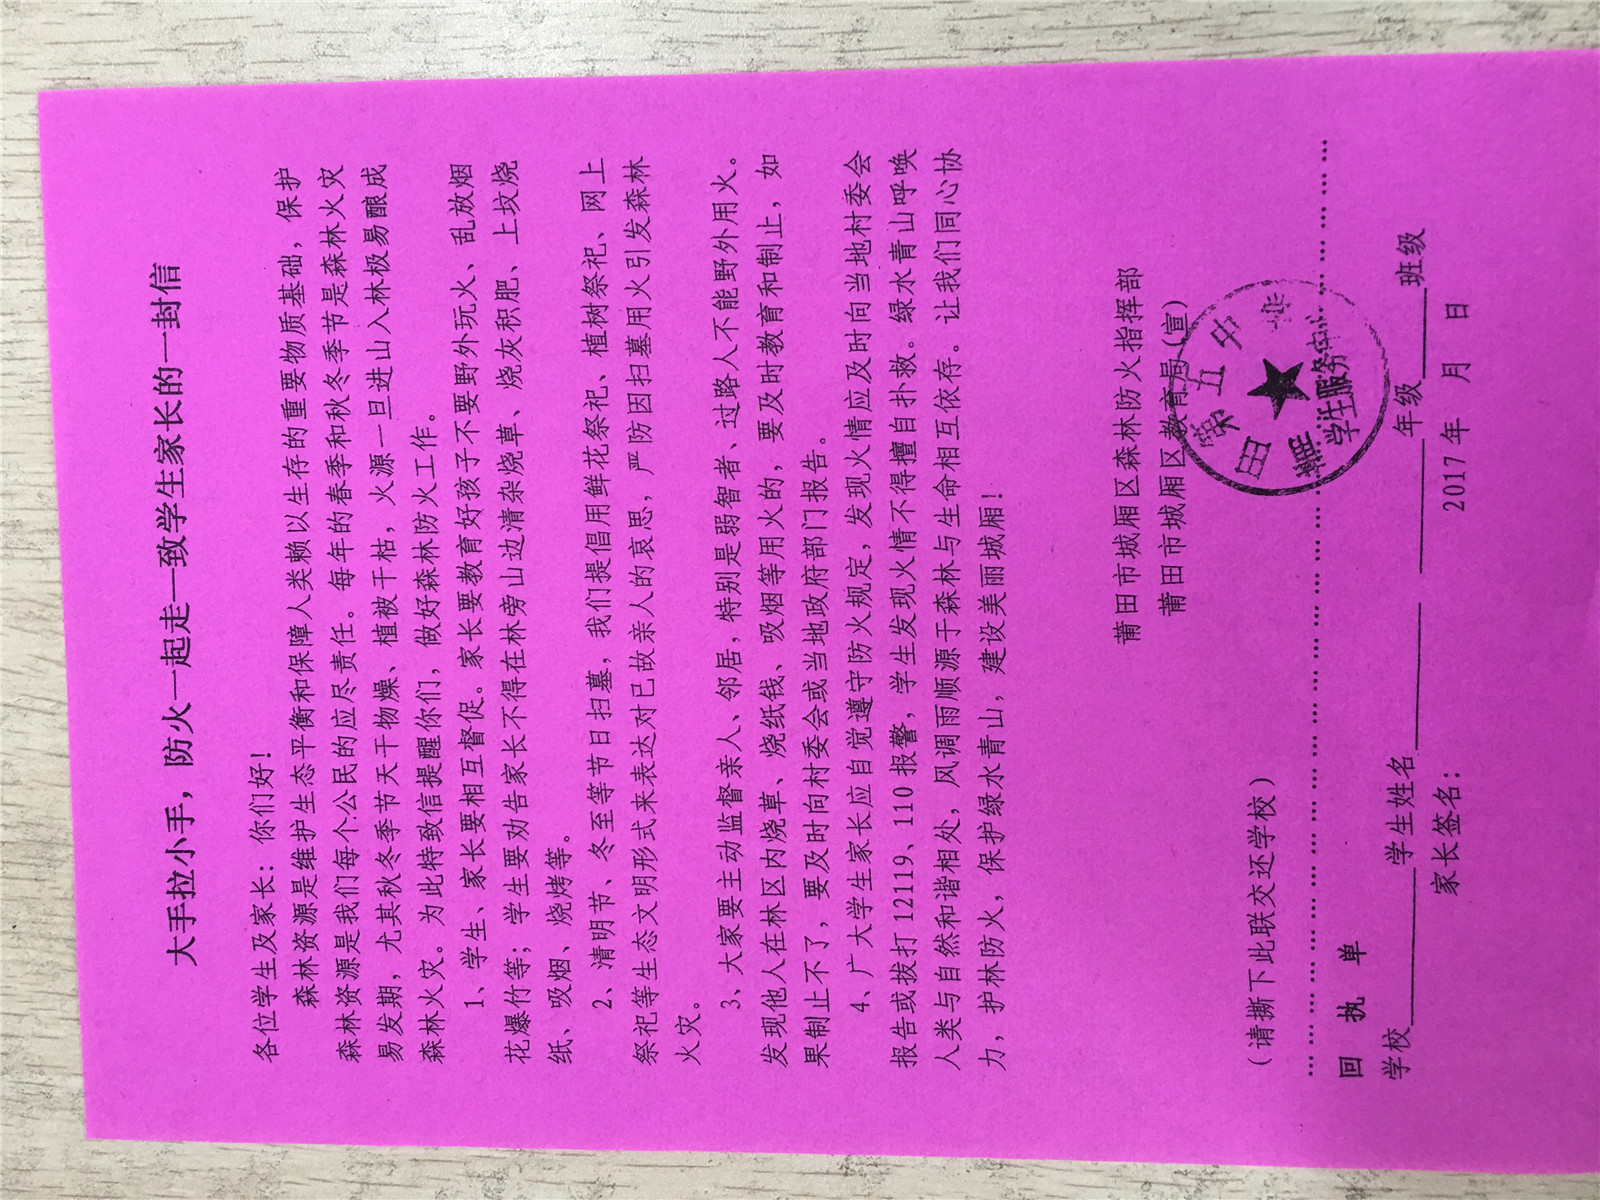 大手拉小手，防火一起走—致学生家长的一封信
各位学生及家长：你们好！
森林资源是维护生态平衡和保障人类赖以生存的重要物质基础，保护
森林资源是我们每个公民的应尽责任。每年的春季和秋冬季节是森林火灾
易发期，尤其秋冬季节天干物燥、植被干枯，火源一旦进山入林极易酿成
森林火灾。为此特致信提醒你们，做好森林防火工作。
1、学生、家长要相互督促。家长要教育好孩子不要野外玩火、乱放烟
花爆竹等；学生要劝告家长不得在林旁山边清杂烧草、烧灰积肥、上坟烧
纸、吸烟、烧烤等。
2、清明节、冬至等节日扫墓，我们提倡用鲜花祭祀、植树祭祀、网上
祭祀等生态文明形式来表达对已故亲人的哀思，严防因扫墓用火引发森林
火灾。
3、大家要主动监督亲人、邻居，特别是弱智者、过路人不能野外用火。
发现他人在林区内烧草、烧纸钱、吸烟等用火的，要及时教育和制止，如
果制止不了，要及时向村委会或当地政府部门报告。
4、广大学生家长应自觉遵守防火规定，发现火情应及时向当地村委会
报告或拔打12119、110报警，学生发现火情不得擅自扑救。绿水青山呼唤
人类与自然和谐相处，风调雨顺源于森林与生命相互依存．让我们同心协
力，护林防火，保护绿水青山，建设美丽城厢！
莆田市城厢区森林防火指挥部
莆田市城厢区教育局（宣）
莆田第五中学
学生服务室
（请撕下此联交还学校）
回 执 单
学校 学生姓名 年级 班级
家长签名： 2017年 月 日